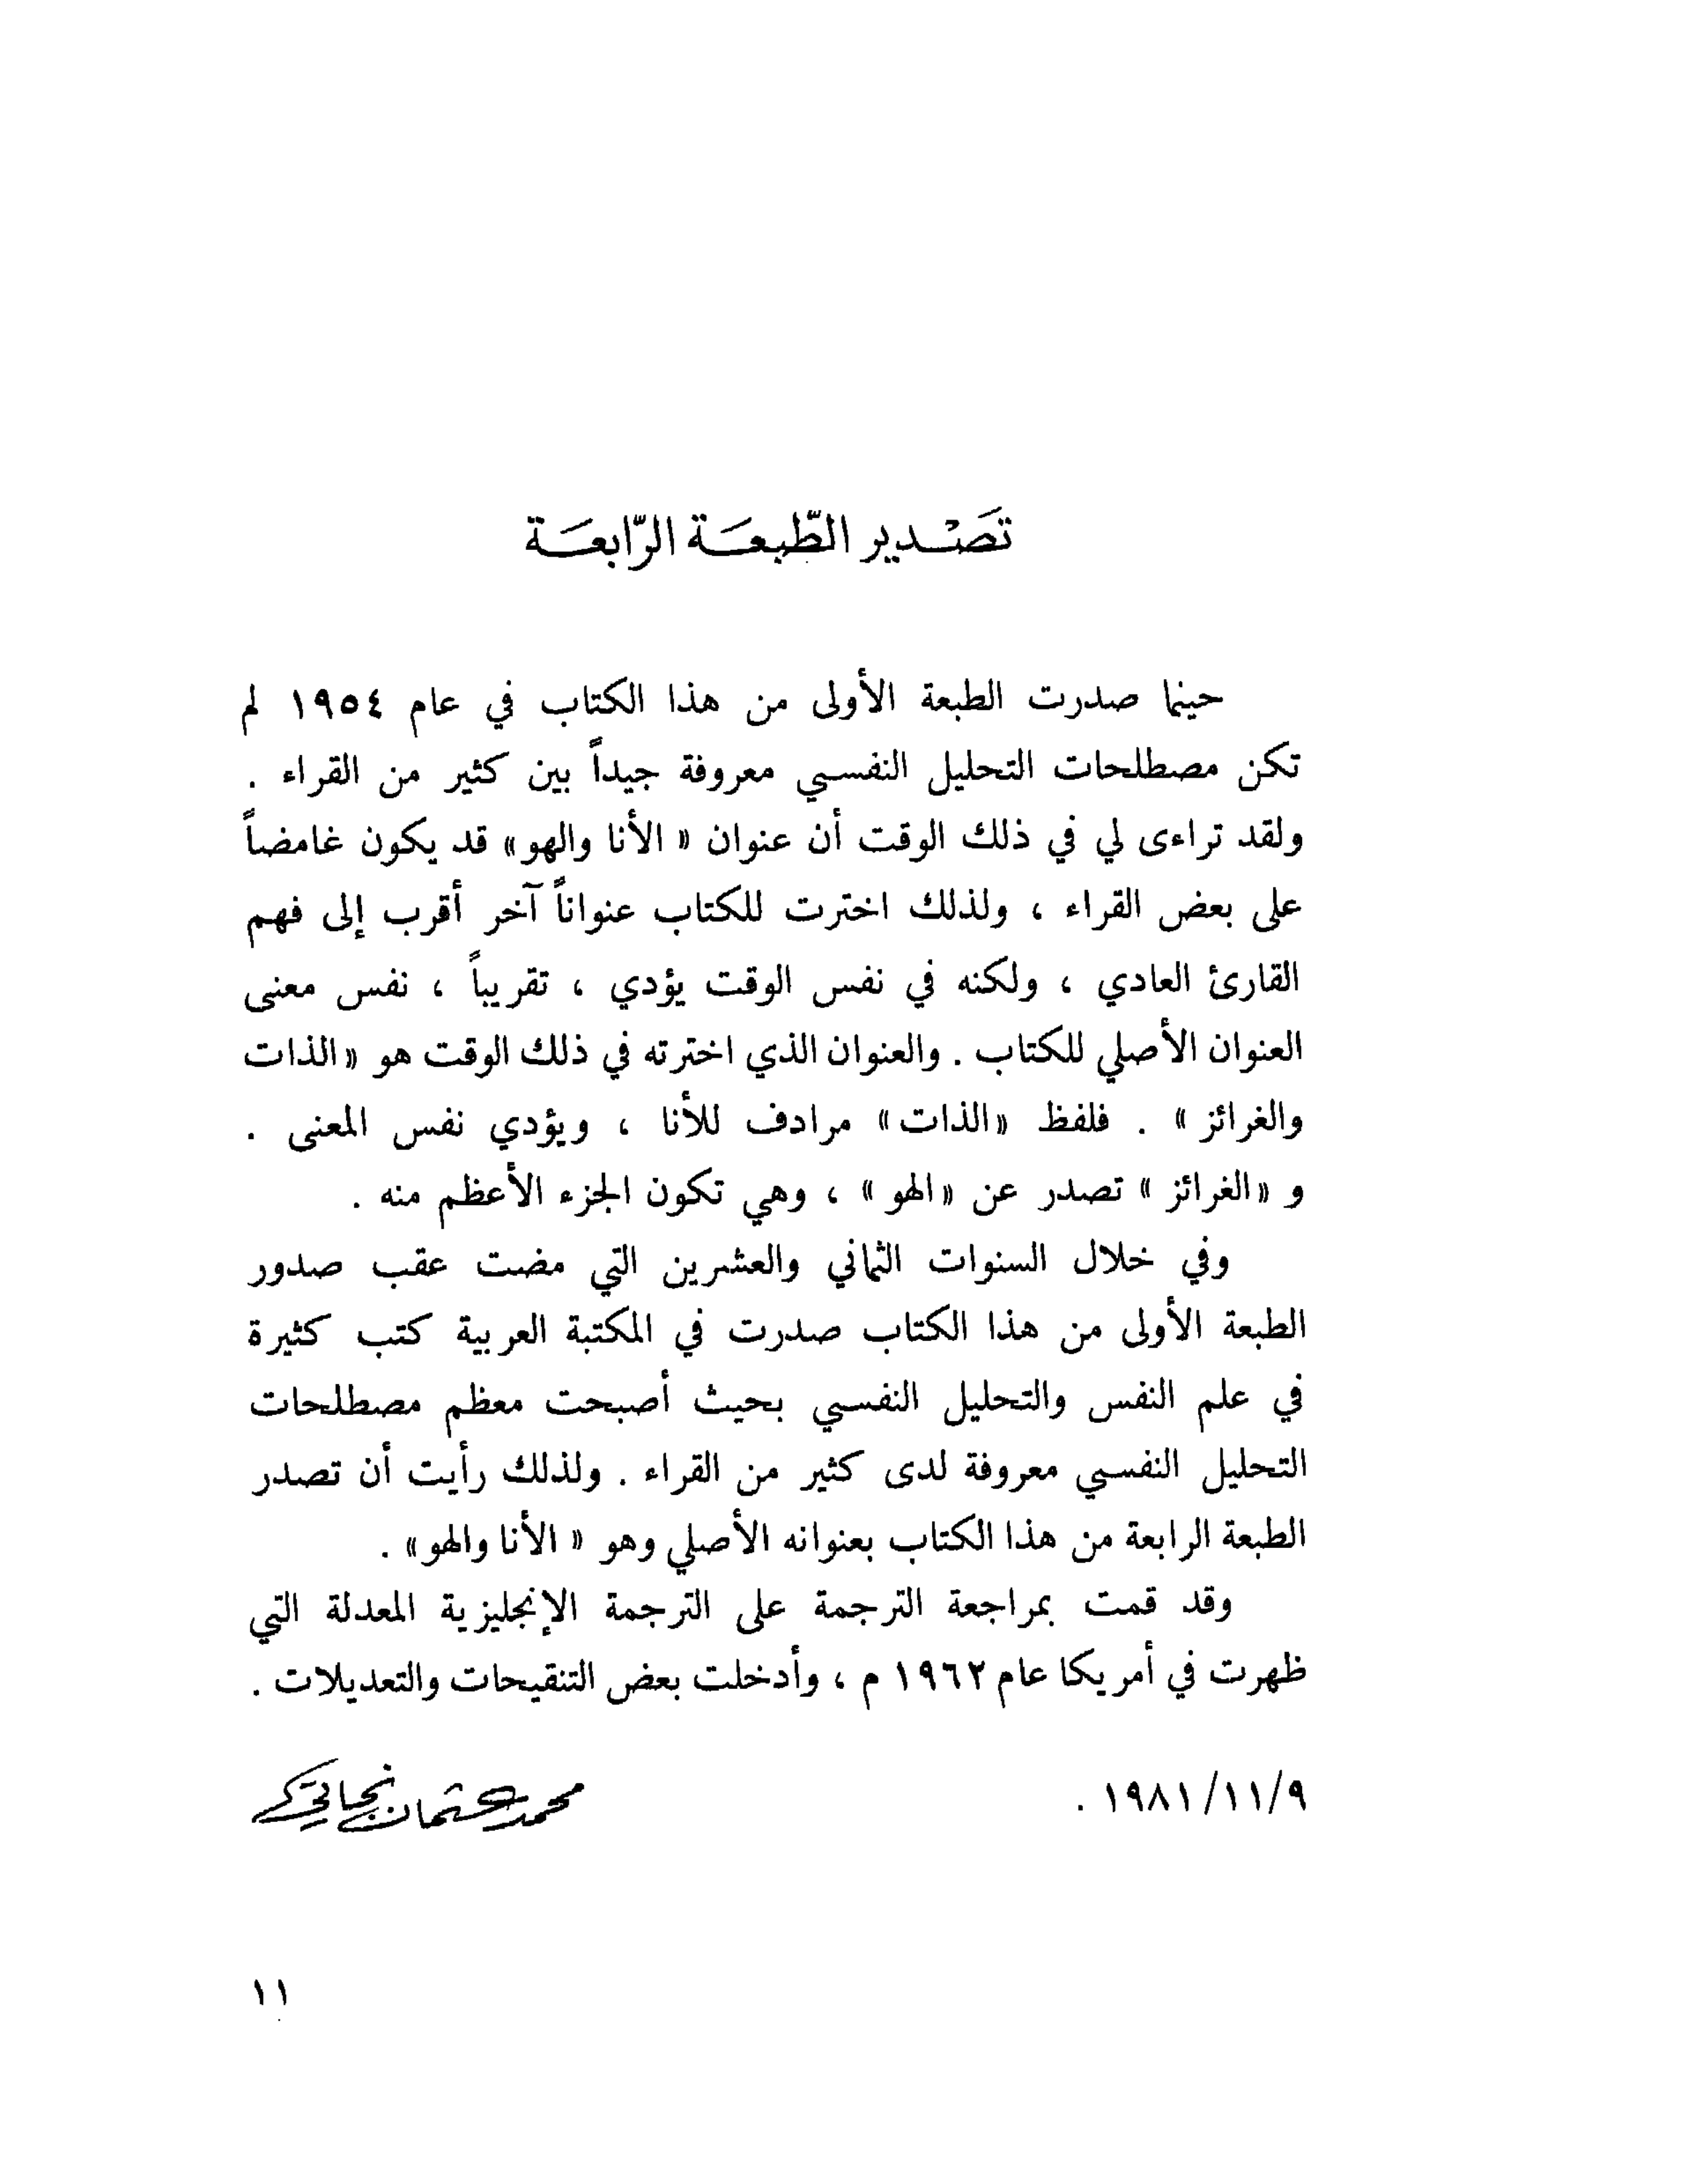 تَصْدير الطّبعَة الرّابعَة
حينما صدرت الطبعة الأولى من هذا الكتاب في عام ١٩٥٤ لم
تكن مصطلحات التحليل النفسي معروفة جيداً بين كثير من القراء .
ولقد تراءى لي في ذلك الوقت أن عنوان « الأنا والهو» قد يكون غامضاً
على بعض القراء ، ولذلك اخترت للكتاب عنواناً آخر أقرب إلى فهم
القارئ العادي ، ولكنه في نفس الوقت يؤدي ، تقريباً ، نفس معنى
العنوان الأصلي للكتاب . والعنوان الذي اخترته في ذلك الوقت هو «الذات
والغرائز » . فلفظ «الذات» مرادف للأنا ، ويؤدي نفس المعنى .
و «الغرائز » تصدر عن «الهو » ، وهي تكون الجزء الأعظم منه .
وفي خلال السنوات الثماني والعشرين التي مضت عقب صدور
الطبعة الأولى من هذا الكتاب صدرت في المكتبة العربية كتب كثيرة
في علم النفس والتحليل النفسي بحيث أصبحت معظم مصطلحات
التحليل النفسي معروفة لدى كثير من القراء . ولذلك رأيت أن تصدر
الطبعة الرابعة من هذا الكتاب بعنوانه الأصلي وهو « الأنا والهو» .
وقد قمت بمراجعة الترجمة على الترجمة الإنجليزية المعدلة التي
ظهرت في أمريكا عام ١٩٦٢ م ، وأدخلت بعض التنقيحات والتعديلات .
١٩٨١/١١/٩ .
محمد عثمان نجاتي
١١